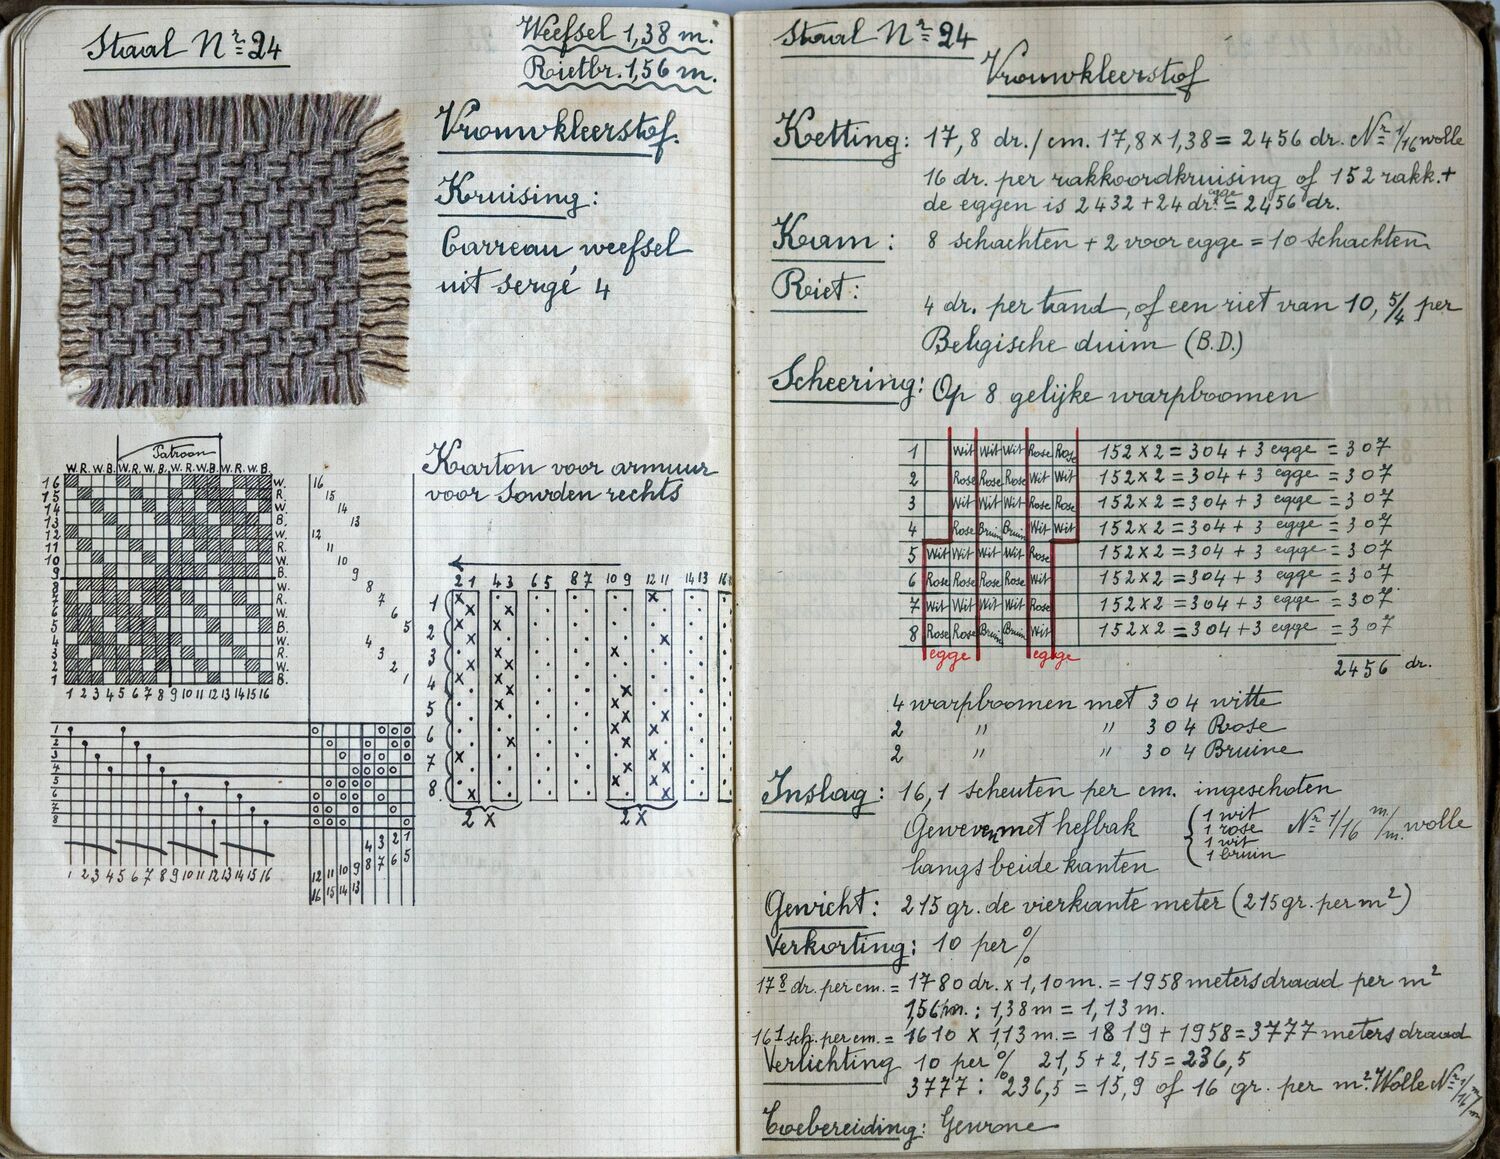 Staal Nr 24
Weefsel 1,38 m.
Rietbr. 1,56 m.
Vrouwkleerstof.
Kruising:
Carreau weefsel
uit sergé 4
Patroon
W. R. W. B. W. R. W. B. W. R. W. B. W. R. W. B.
16 W. 16
15 R. 15
14 W. 14
13 B. 13
12 W. 12
11 R. 11
10 W. 10
9 B. 9
8 W. 8
7 R. 7
6 W. 6
5 B. 5
4 W. 4
3 R. 3
2 W. 2
1 B. 1
1 2 3 4 5 6 7 8 9 10 11 12 13 14 15 16
1
2
3
4
5
6
7
8
1 2 3 4 5 6 7 8 9 10 11 12 13 14 15 16
4 3 2 1
8 7 6 5
12 11 10 9
16 15 14 13
Karton voor armuur
voor Sowden rechts
2 1 4 3 6 5 8 7 10 9 12 11 14 13 16
1
2
3
4
5
6
7
8
2 X 2 X
Staal Nr 24
Vrouwkleerstof
Ketting: 17,8 dr./cm. 17,8 x 1,38 = 2456 dr. Nr 1/16 wolle
16 dr. per rakkoordkruising of 152 rakk. +
de eggen is 2432 + 24 dr. egge = 2456 dr.
Kam: 8 schachten + 2 voor egge = 10 schachten
Riet:
4 dr. per tand, of een riet van 10, 5/4 per
Belgische duim (B.D.)
Scheering: Op 8 gelijke warpboomen
1 Wit Wit Wit Rose Rose 152 x 2 = 304 + 3 egge = 307
2 Rose Rose Rose Wit Wit 152 x 2 = 304 + 3 egge = 307
3 Wit Wit Wit Rose Rose 152 x 2 = 304 + 3 egge = 307
4 Rose Bruin Bruin Wit Wit 152 x 2 = 304 + 3 egge = 307
5 Wit Wit Wit Wit Rose 152 x 2 = 304 + 3 egge = 307
6 Rose Rose Rose Rose Wit 152 x 2 = 304 + 3 egge = 307
7 Wit Wit Wit Wit Rose 152 x 2 = 304 + 3 egge = 307
8 Rose Rose Bruin Bruin Wit 152 x 2 = 304 + 3 egge = 307
egge egge
2456 dr.
4 warpboomen met 304 witte
2 " " 304 Rose
2 " " 304 Bruine
Inslag: 16,1 scheuten per cm. ingeschoten
Geweven met hefbak { 1 wit 1 rose 1 wit 1 bruin Nr 1/16 m/m. wolle
langs beide kanten
Gewicht: 215 gr. de vierkante meter (215 gr. per m²)
Verkorting: 10 per %
17⁸ dr. per cm. = 1780 dr. x 1,10 m. = 1958 meters draad per m²
1,56 m. : 1,38 m = 1,13 m.
16¹ sch. per cm. = 1610 X 1,13 m. = 1819 + 1958 = 3777 meters draad
Verlichting 10 per % 21,5 + 2,15 = 236,5
3777 : 236,5 = 15,9 of 16 gr. per m². Wolle Nr 1/16 m/m
Toebereiding: Gewone